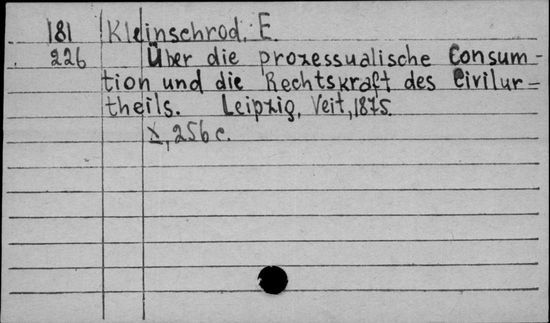 181 Kleinschrod, E.
226 Über die prozessualische Consum-
tion und die Rechtskraft des Civilur-
theils. Leipzig, Veit, 1875.
X, 256 c.